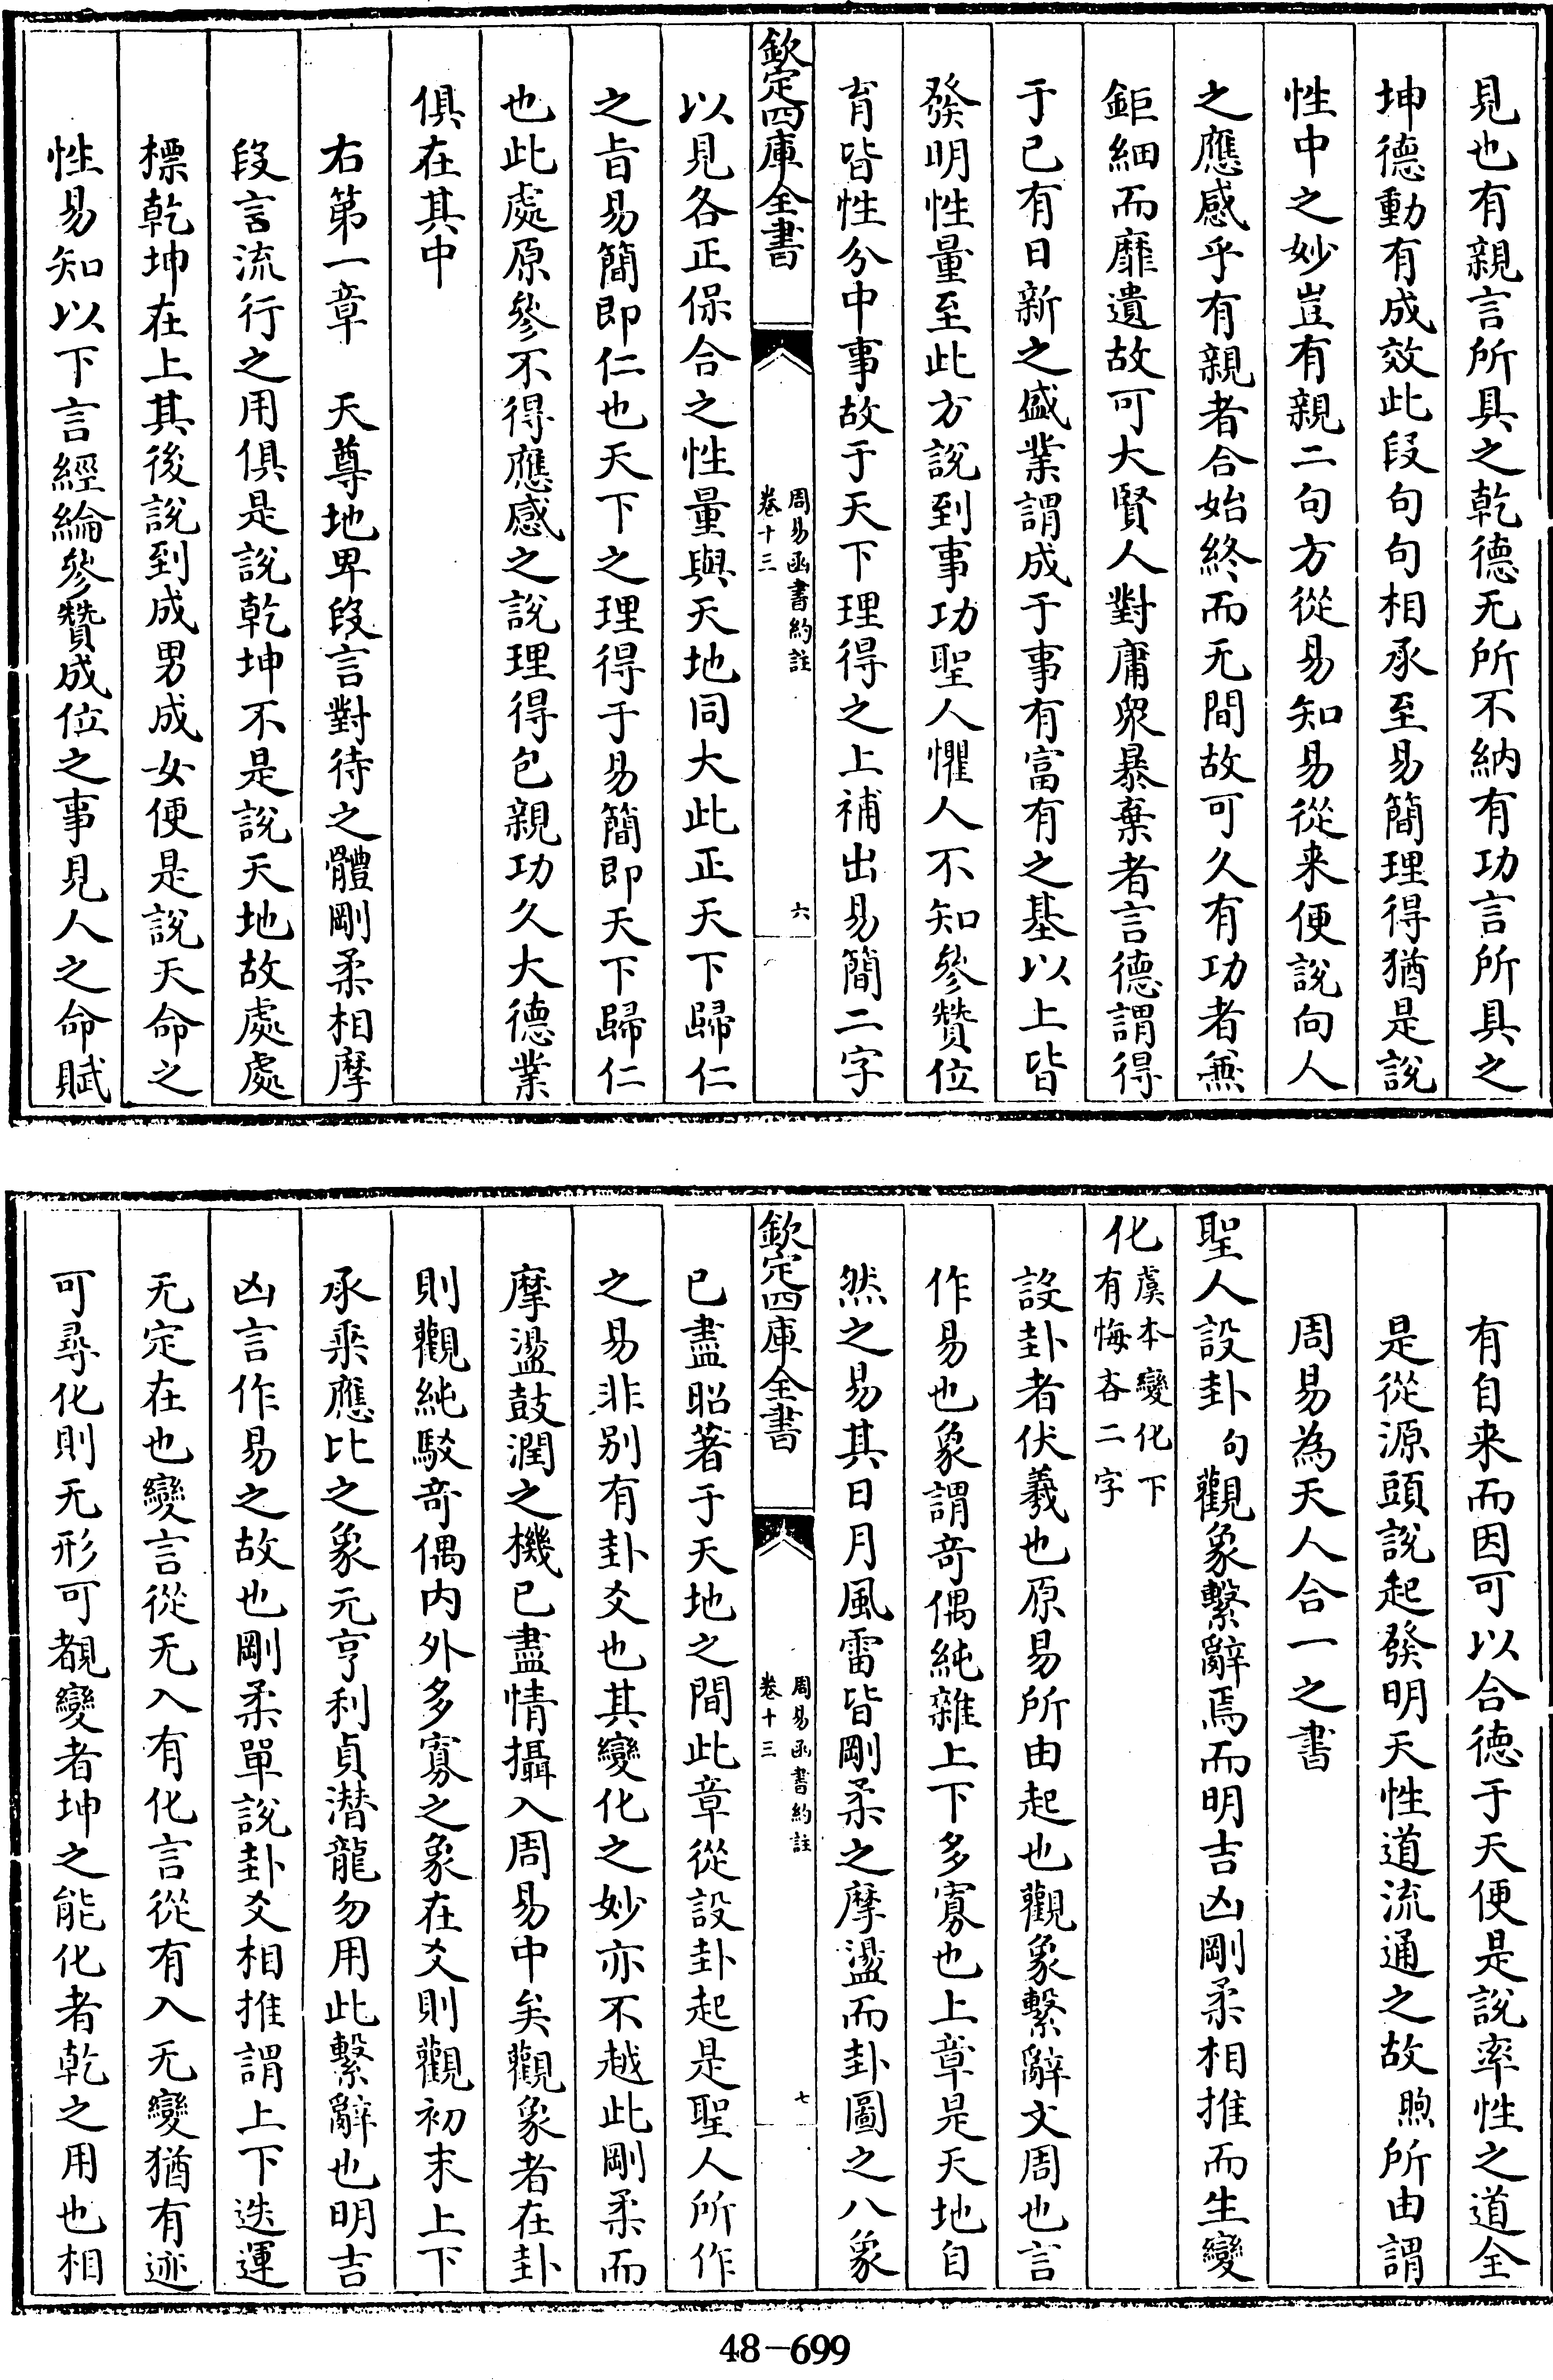 見也有親言所具之乾德无所不納有功言所具之
坤德動有成效此段句句相承至易簡理得猶是說
性中之妙豈有親二句方從易知易從来便說向人
之應感乎有親者合始終而无間故可久有功者兼
鉅細而靡遺故可大賢人對庸衆暴棄者言德謂得
于已有日新之盛業謂成于事有富有之基以上皆
發明性量至此方說到事功聖人懼人不知參贊位
育皆性分中事故于天下理得之上補出易簡二字
欽定四庫全書
周易函書約註
卷十三
六
以見各正保合之性量與天地同大此正天下歸仁
之旨易簡即仁也天下之理得于易簡即天下歸仁
也此處原參不得應感之說理得包親功久大德業
俱在其中
右第一章　天尊地卑段言對待之體剛柔相摩
段言流行之用俱是說乾坤不是說天地故處處
標乾坤在上其後說到成男成女便是說天命之
性易知以下言經綸參贊成位之事見人之命賦
有自来而因可以合德于天便是說率性之道全
是從源頭說起發明天性道流通之故煦所由謂
周易為天人合一之書
聖人設卦句觀象繫辭焉而明吉凶剛柔相推而生變
化虞本變化下有悔吝二字
設卦者伏羲也原易所由起也觀象繫辭文周也言
作易也象謂奇偶純雜上下多寡也上章是天地自
然之易其日月風雷皆剛柔之摩盪而卦圖之八象
欽定四庫全書
周易函書約註
卷十三
七
已盡昭著于天地之間此章從設卦起是聖人所作
之易非别有卦爻也其變化之妙亦不越此剛柔而
摩盪鼓潤之機已盡情攝入周易中矣觀象者在卦
則觀純駁奇偶内外多寡之象在爻則觀初末上下
承乘應比之象元亨利貞潛龍勿用此繫辭也明吉
凶言作易之故也剛柔單說卦爻相推謂上下迭運
无定在也變言從无入有化言從有入无變猶有迹
可尋化則无形可覩變者坤之能化者乾之用也相
48-699